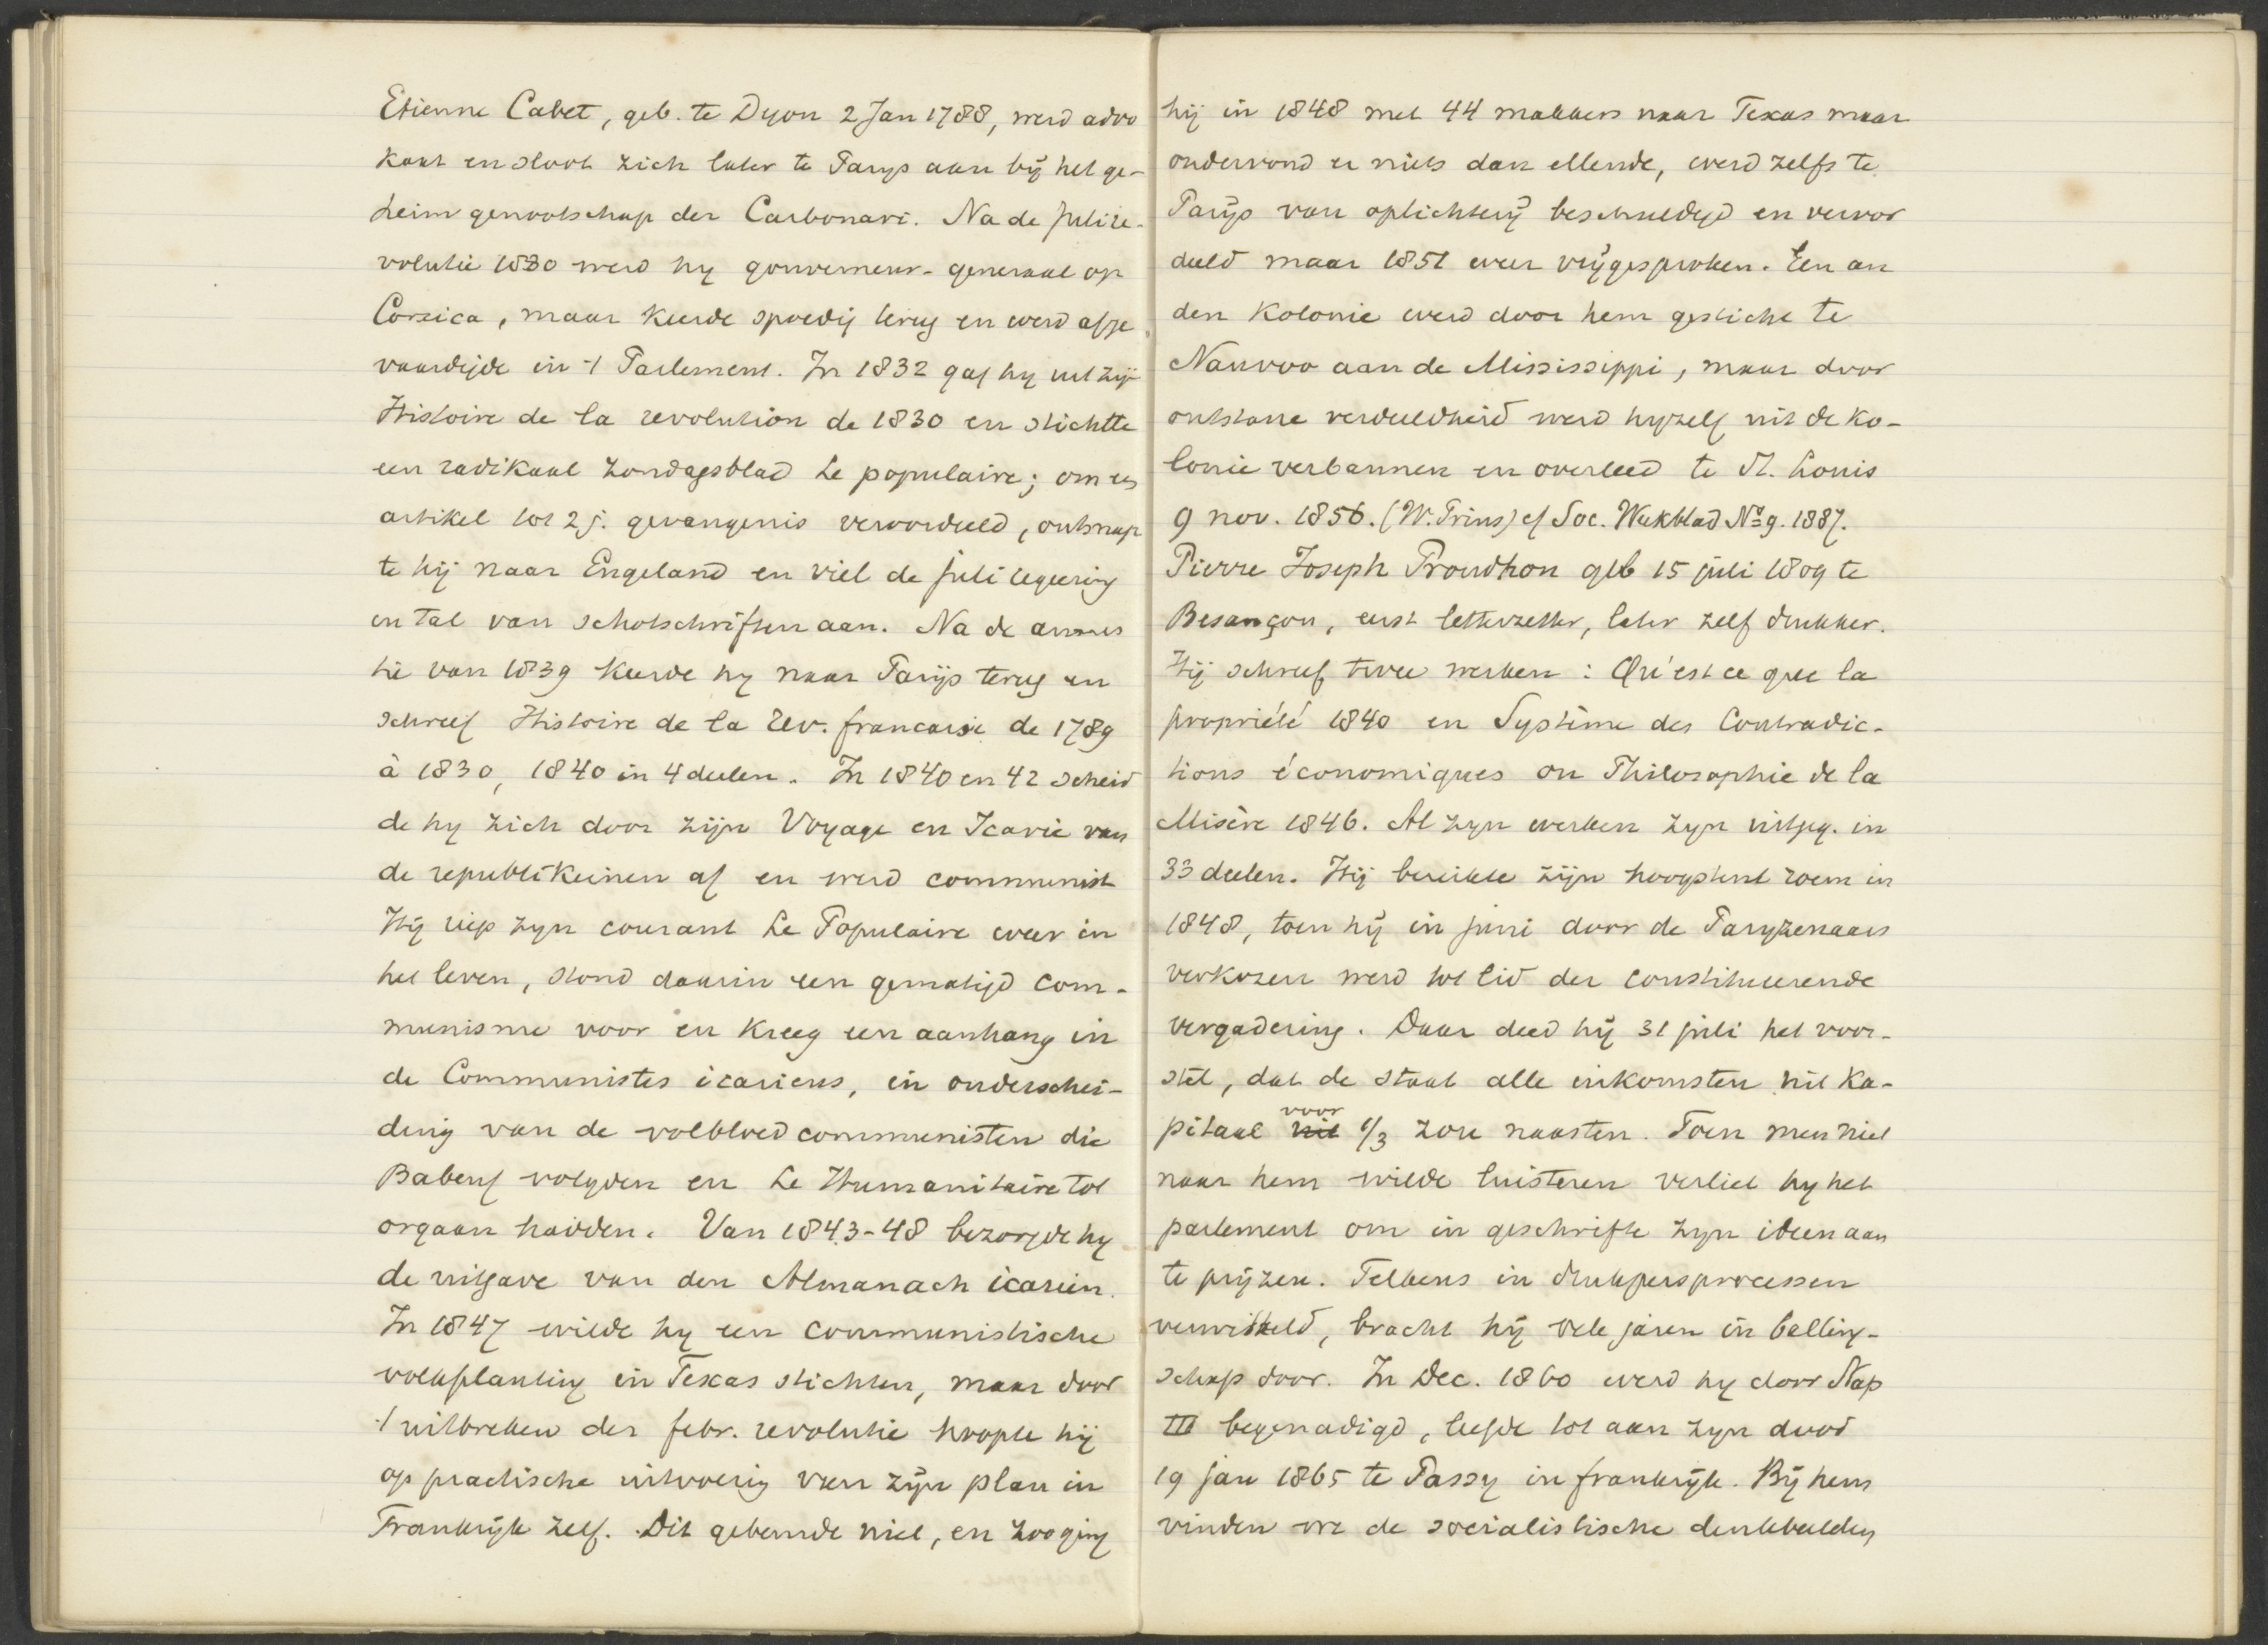 Etienne Cabet, geb. te Dyon 2 Jan 1788, werd advo
kaat en sloot zich later te Parys aan bij het ge-
heim genootschap der Carbonari. Na de julire-
volutie 1830 werd hy gouverneur-generaal op
Corsica, maar keerde spoedig terug en werd afge
vaardigde in 't Parlement. In 1832 gaf hy uit zijn
Histoire de la revolution de 1830 en stichtte
een radikaal Zondagsblad Le populaire; om een
artikel tot 2 j. gevangenis veroordeeld, ontsnap
te hij naar Engeland en viel de juli regeering
in tal van schotschriften aan. Na de amnes
tie van 1839 keerde hy naar Parijs terug en
schreef Histoire de la Rev. francaise de 1789
à 1830, 1840 in 4 deelen. In 1840 en 42 scheid
de hy zich door zijn Voyage en Icarie van
de republikeinen af en werd communist
Hij riep zyn courant Le Populaire weer in
het leven, stond daarin een gematigd com-
munisme voor en kreeg een aanhang in
de Communistes icariens, in onderschei-
ding van de volbloed communisten die
Babeuf volgden en Le Humanitaire tot
orgaan hadden. Van 1843-48 bezorgde hy
de uitgave van den Almanach icarien.
In 1847 wilde hy een communistische
volkplanting in Texas stichten, maar door
't uitbreken der febr. revolutie hoopte hij
op practische uitvoering van zijn plan in
Frankrijk zelf. Dit gebeurde niet, en zoo ging
hij in 1848 met 44 makkers naar Texas maar
ondervond er niets dan ellende, werd zelfs te
Parijs van oplichterij beschuldigd en veroor
deeld maar 1851 weer vrijgesproken. Een an
den kolonie werd door hem gesticht te
Nauvoo aan de Mississippi, maar door
ontstane verdeeldheid werd hyzelf uit de ko-
lonie verbannen en overleed te St. Louis
9 nov. 1856. (W. Prins) cf Soc. Weekblad No 9. 1887.
Pierre Joseph Proudhon geb 15 juli 1809 te
Besançon, eerst letterzetter, later zelf drukker.
Hij schreef twee werken: Qu'est ce que la
propriété 1840 en Système des Contradic-
tions économiques ou Philosophie de la
Misère 1846. Al zyn werken zyn uitgeg. in
33 deelen. Hij bereikte zijn hoogsten roem in
1848, toen hij in juni door de Paryzenaars
verkozen werd tot lid der constitueerende
vergadering. Daar deed hij 31 juli het voor-
stel, dat de staat alle inkomsten uit ka-
pitaal uit voor 1/3 zou naasten. Toen men niet
naar hem wilde luisteren verliet hy het
parlement om in geschrifte zyn ideen aan
te prijzen. Telkens in drukpersprocessen
verwikkeld, bracht hij vele jaren in balling-
schap door. In Dec. 1860 werd hy door Nap
III begenadigd, leefde tot aan zyn dood
19 jan 1865 te Passy in frankrijk. Bij hem
vinden we de socialistische denkbeelden